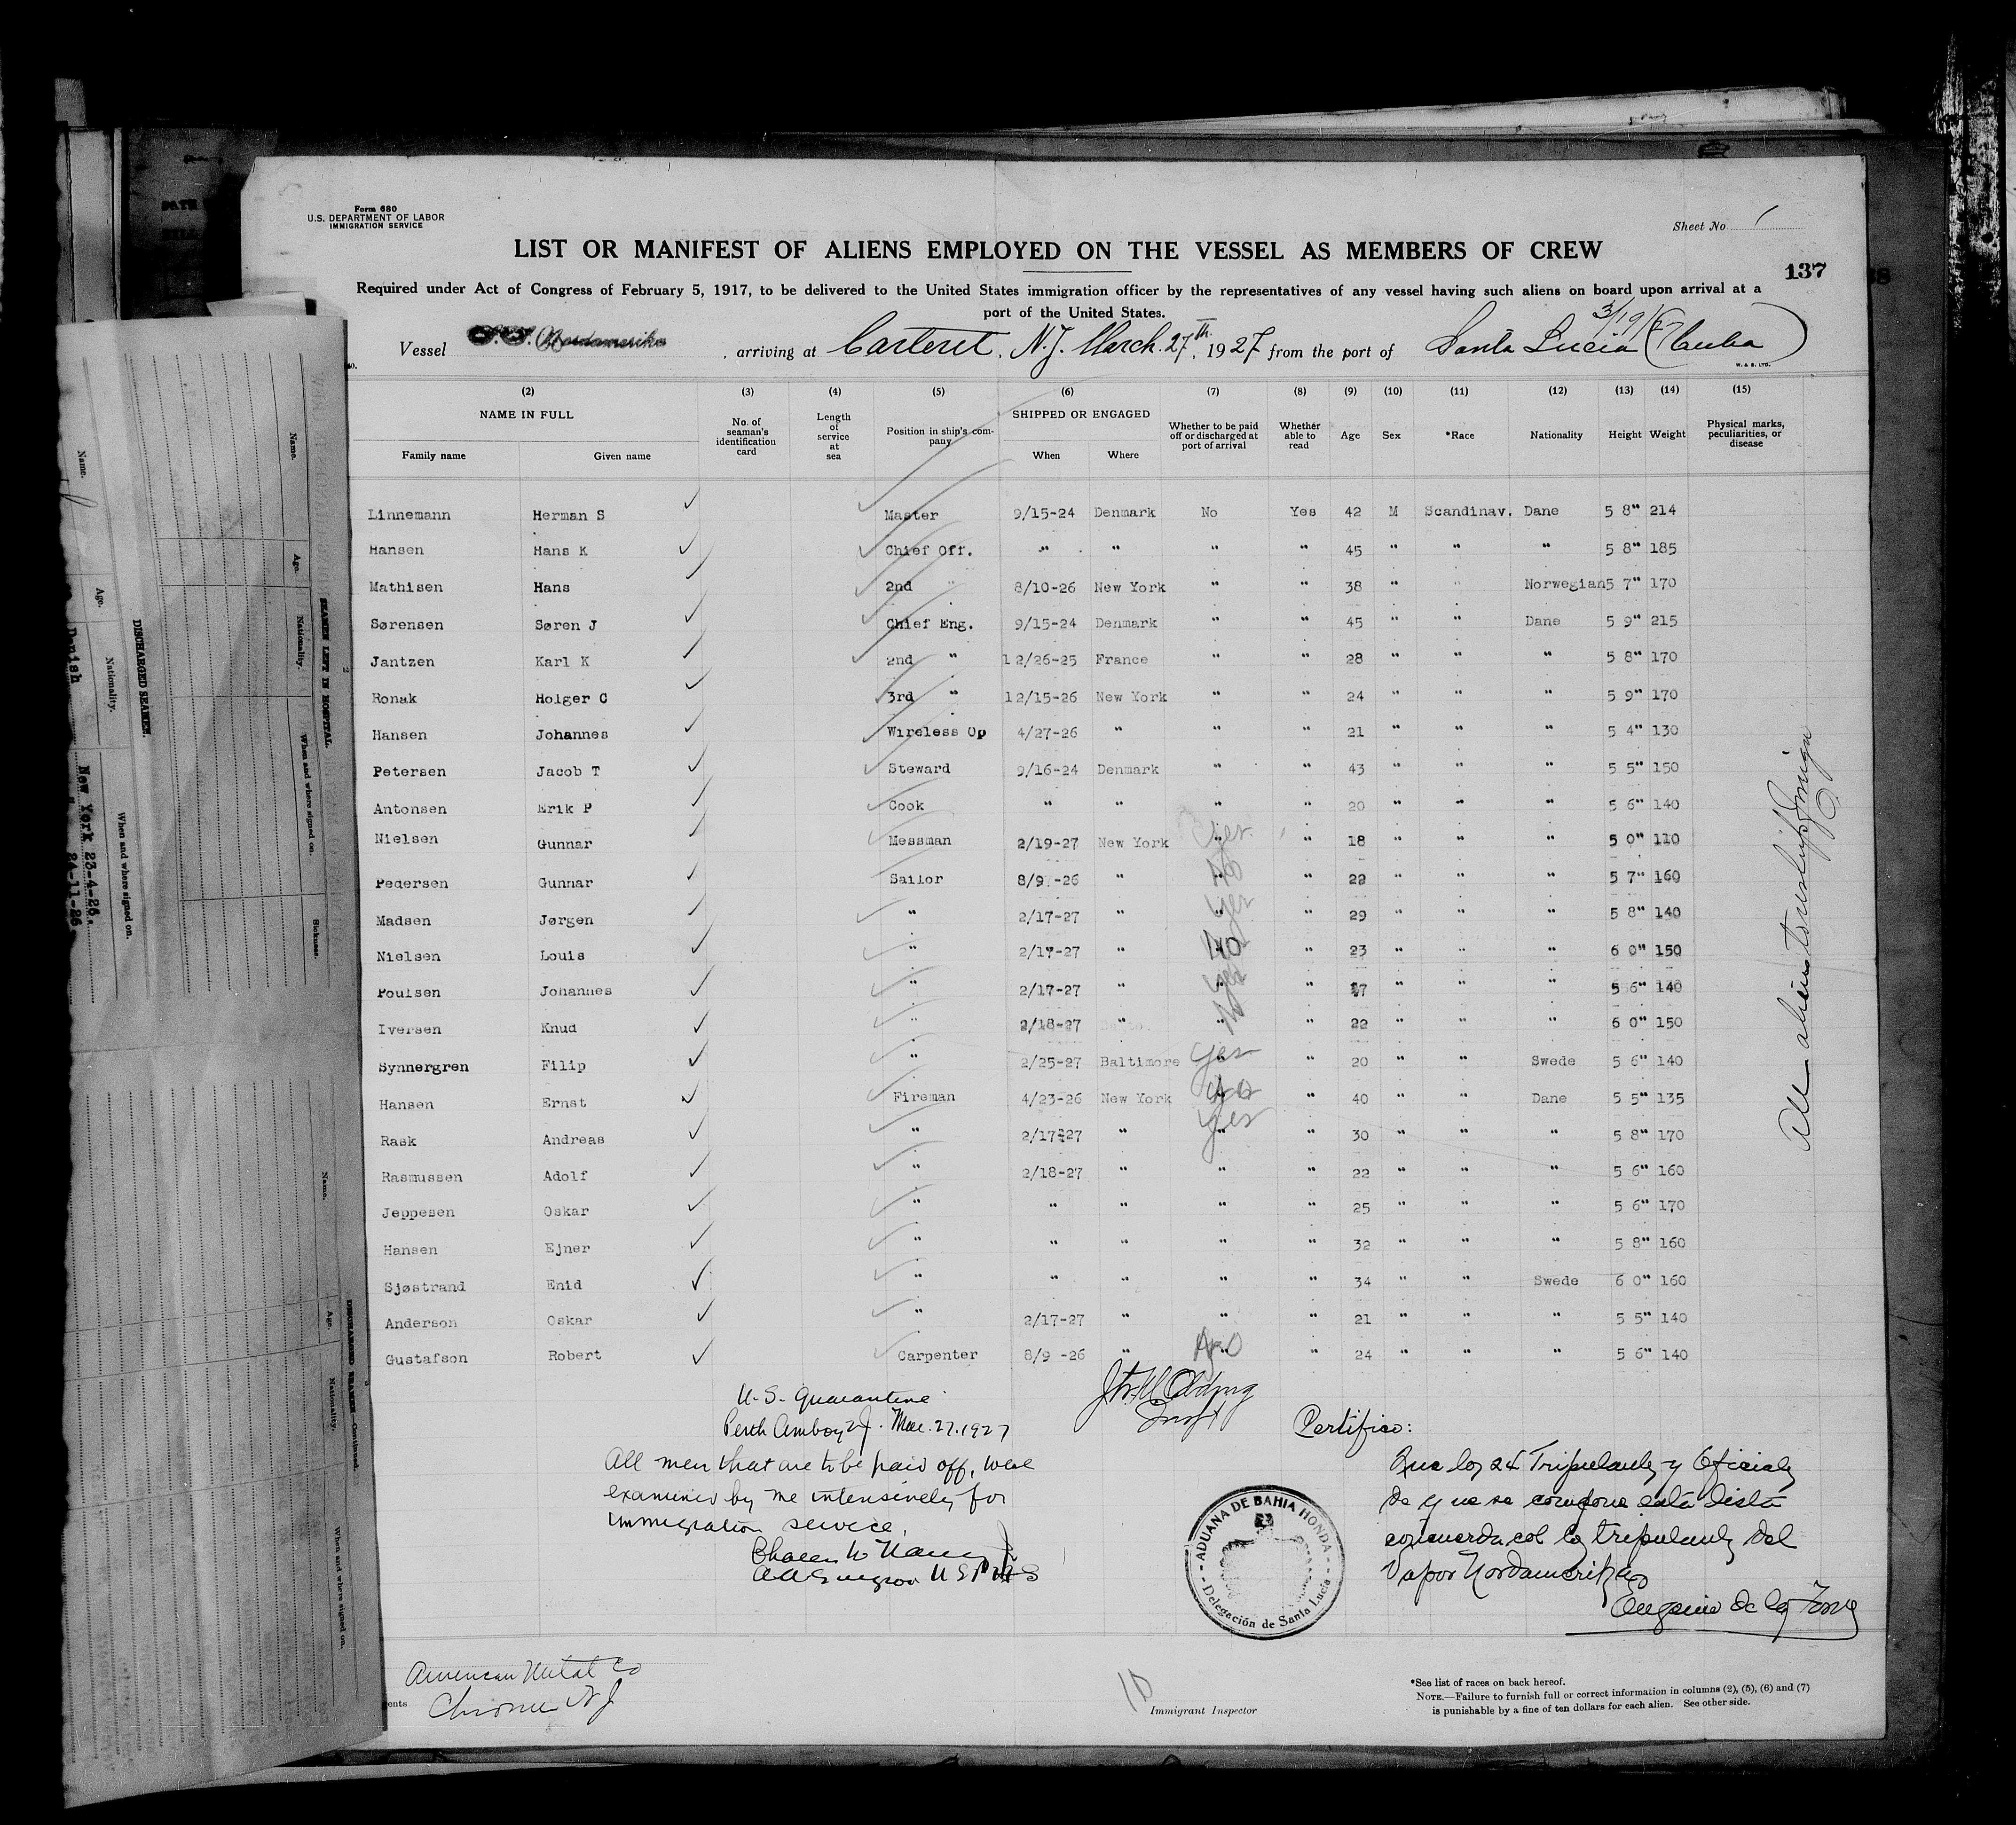 Form 680
U.S. DEPARTMENT OF LABOR
IMMIGRATION SERVICE
Sheet No. 1
LIST OR MANIFEST OF ALIENS EMPLOYED ON THE VESSEL AS MEMBERS OF CREW
137
Required under Act of Congress of February 5, 1917, to be delivered to the United States immigration officer by the representatives of any vessel having such aliens on board upon arrival at a
port of the United States.
3/19/27
Vessel S.S. Nordamerika, arriving at Carteret, N.J. March 27th, 1927 from the port of Santa Lucia (Cuba)
W. & S. LTD.
(2) (3) (4) (5) (6) (7) (8) (9) (10) (11) (12) (13) (14) (15)
NAME IN FULL No. of seaman's identification card Length of service at sea Position in ship's company SHIPPED OR ENGAGED Whether to be paid off or discharged at port of arrival Whether able to read Age Sex *Race Nationality Height Weight Physical marks, peculiarities, or disease
Family name Given name When Where
Linnemann Herman S Master 9/15-24 Denmark No Yes 42 M Scandinav. Dane 5 8" 214
Hansen Hans K Chief Off. " " " " 45 " " " 5 8" 185
Mathisen Hans 2nd " 8/10-26 New York " " 38 " " Norwegian 5 7" 170
Sørensen Søren J Chief Eng. 9/15-24 Denmark " " 45 " " Dane 5 9" 215
Jantzen Karl K 2nd " 12/26-25 France " " 28 " " " 5 8" 170
Ronak Holger C 3rd " 12/15-26 New York " " 24 " " " 5 9" 170
Hansen Johannes Wireless Op 4/27-26 " " " 21 " " " 5 4" 130
Petersen Jacob T Steward 9/16-24 Denmark " " 43 " " " 5 5" 150
Antonsen Erik P Cook " " " " 20 " " " 5 6" 140
Nielsen Gunnar Messman 2/19-27 New York " yes " 18 " " " 5 0" 110
Pedersen Gunnar Sailor 8/9 -26 " " No " 22 " " " 5 7" 160
Madsen Jørgen " 2/17-27 " " yes " 29 " " " 5 8" 140
Nielsen Louis " 2/17-27 " " No " 23 " " " 6 0" 150
Poulsen Johannes " 2/17-27 " " yes " 17 " " " 5 6" 140
Iversen Knud " 2/18-27 " " No " 22 " " " 6 0" 150
Synnergren Filip " 2/25-27 Baltimore " yes " 20 " " Swede 5 6" 140
Hansen Ernst Fireman 4/23-26 New York " No " 40 " " Dane 5 5" 135
Rask Andreas " 2/17-27 " " yes " 30 " " " 5 8" 170
Rasmussen Adolf " 2/18-27 " " " 22 " " " 5 6" 160
Jeppesen Oskar " " " " " 25 " " " 5 6" 170
Hansen Ejner " " " " " 32 " " " 5 8" 160
Sjøstrand Enid " " " " " 34 " " Swede 6 0" 160
Anderson Oskar " 2/17-27 " " " 21 " " " 5 5" 140
Gustafson Robert Carpenter 8/9 -26 " " No " 24 " " " 5 6" 140
U.S. Quarantine
Perth Amboy N.J. Mar. 27. 1927
All men that are to be paid off, were
examined by me intensively for
immigration service.
USPHS
Inspt
Certifico:
Que los 24 Tripulantes y Oficiales
de que se compone esta Lista
concuerda con los tripulantes del
Vapor Nordamerika
Eugenio de la
ADUANA DE BAHIA HONDA
Delegación de Santa Lucia
American Metal Co
Chrome N J
10
Immigrant Inspector
*See list of races on back hereof.
NOTE.—Failure to furnish full or correct information in columns (2), (5), (6) and (7)
is punishable by a fine of ten dollars for each alien. See other side.
SEAMEN LEFT IN HOSPITAL
Name. Age. Nationality. When and where signed on. Sickness.
DISCHARGED SEAMEN.
Name. Age. Nationality. When and where signed on.
Danish New York 23-4-26.
24-11-26
DISCHARGED SEAMEN—Continued.
Name. Age. Nationality. When and where signed on.